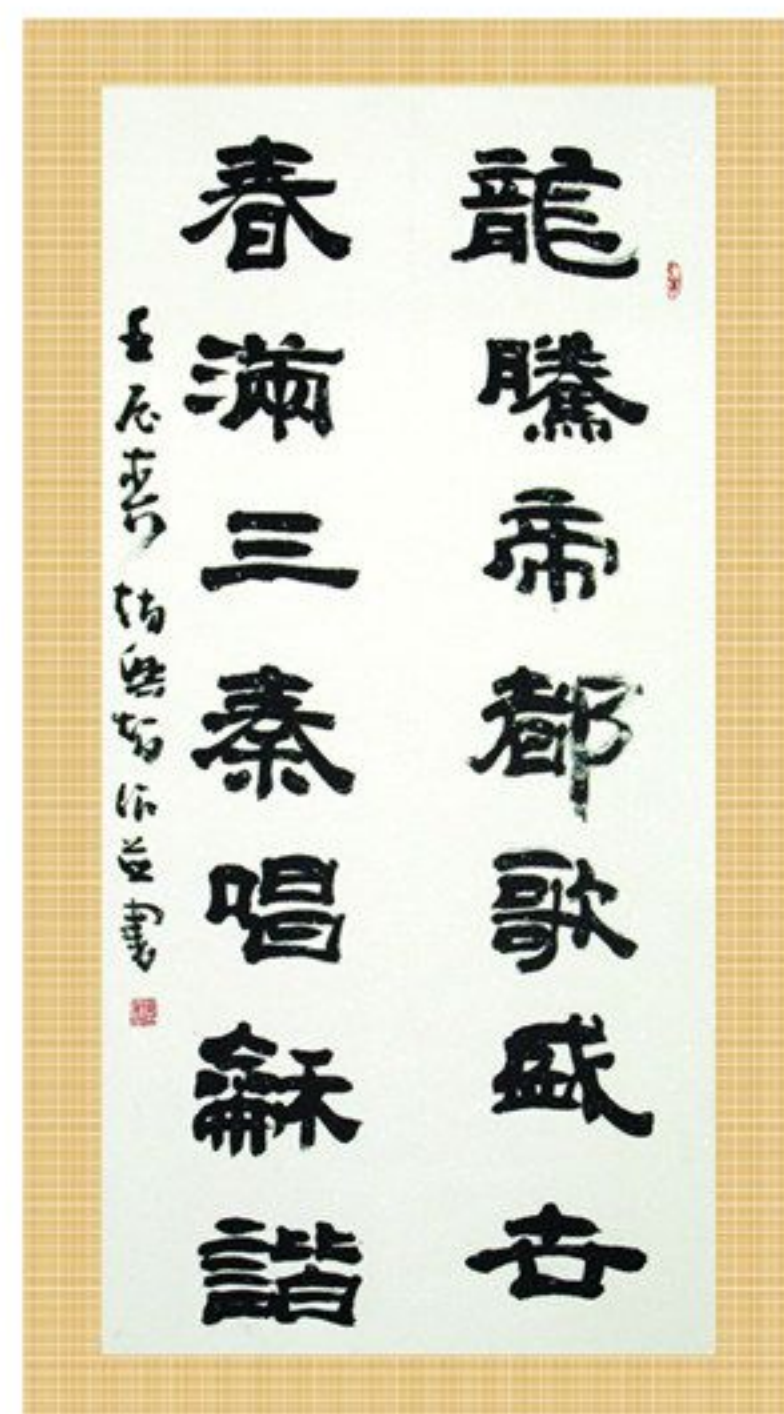 龍騰帝都歌盛世
春滿三秦唱龢諧
壬辰 作並書